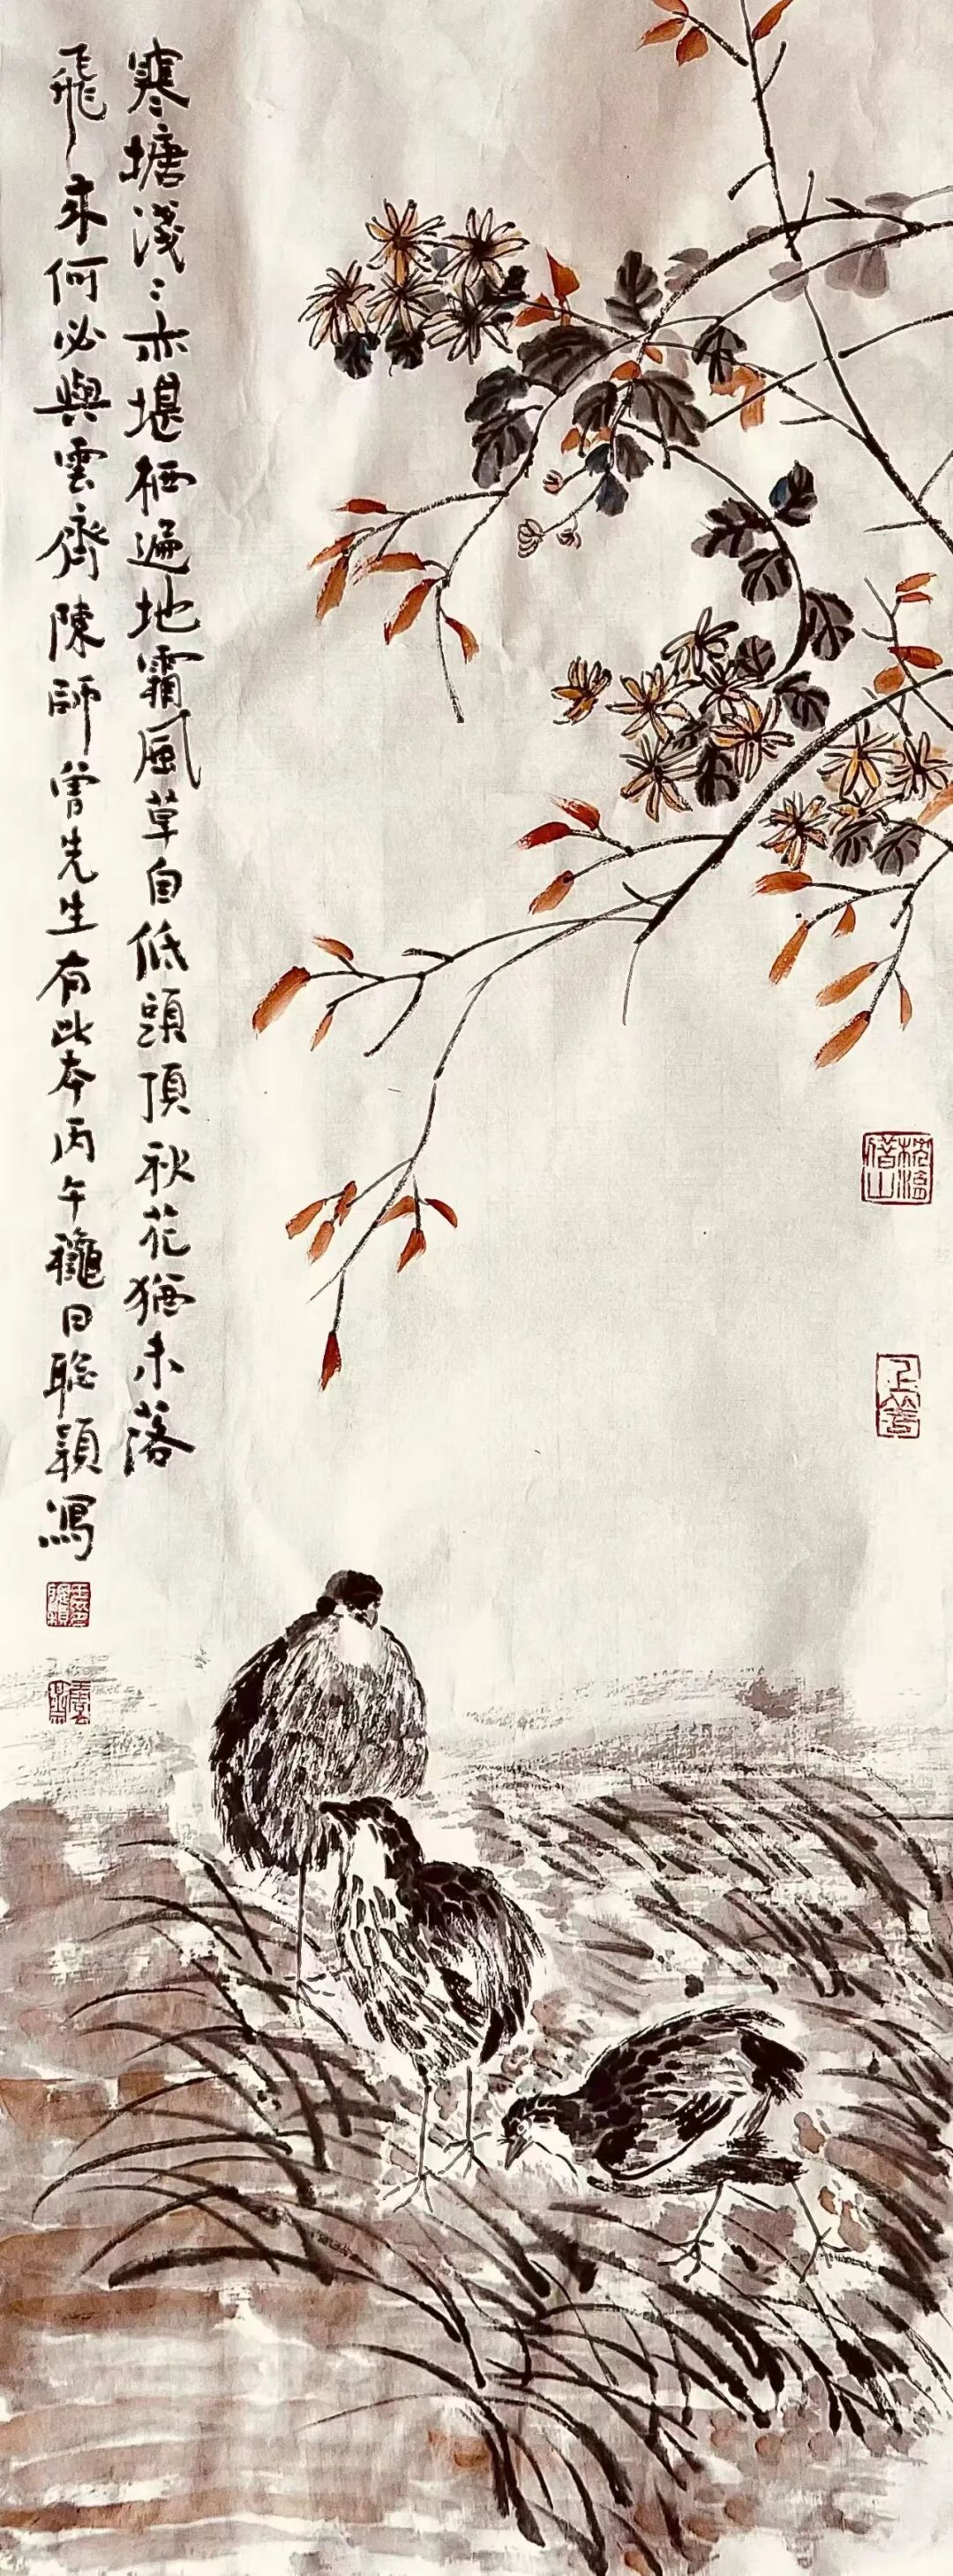 寒塘淺〻亦堪栖遍地霜風草自低頭頂秋花猶未落
飛來何必與雲齊陳師曾先生有此本丙午龝日聪穎寫
上善